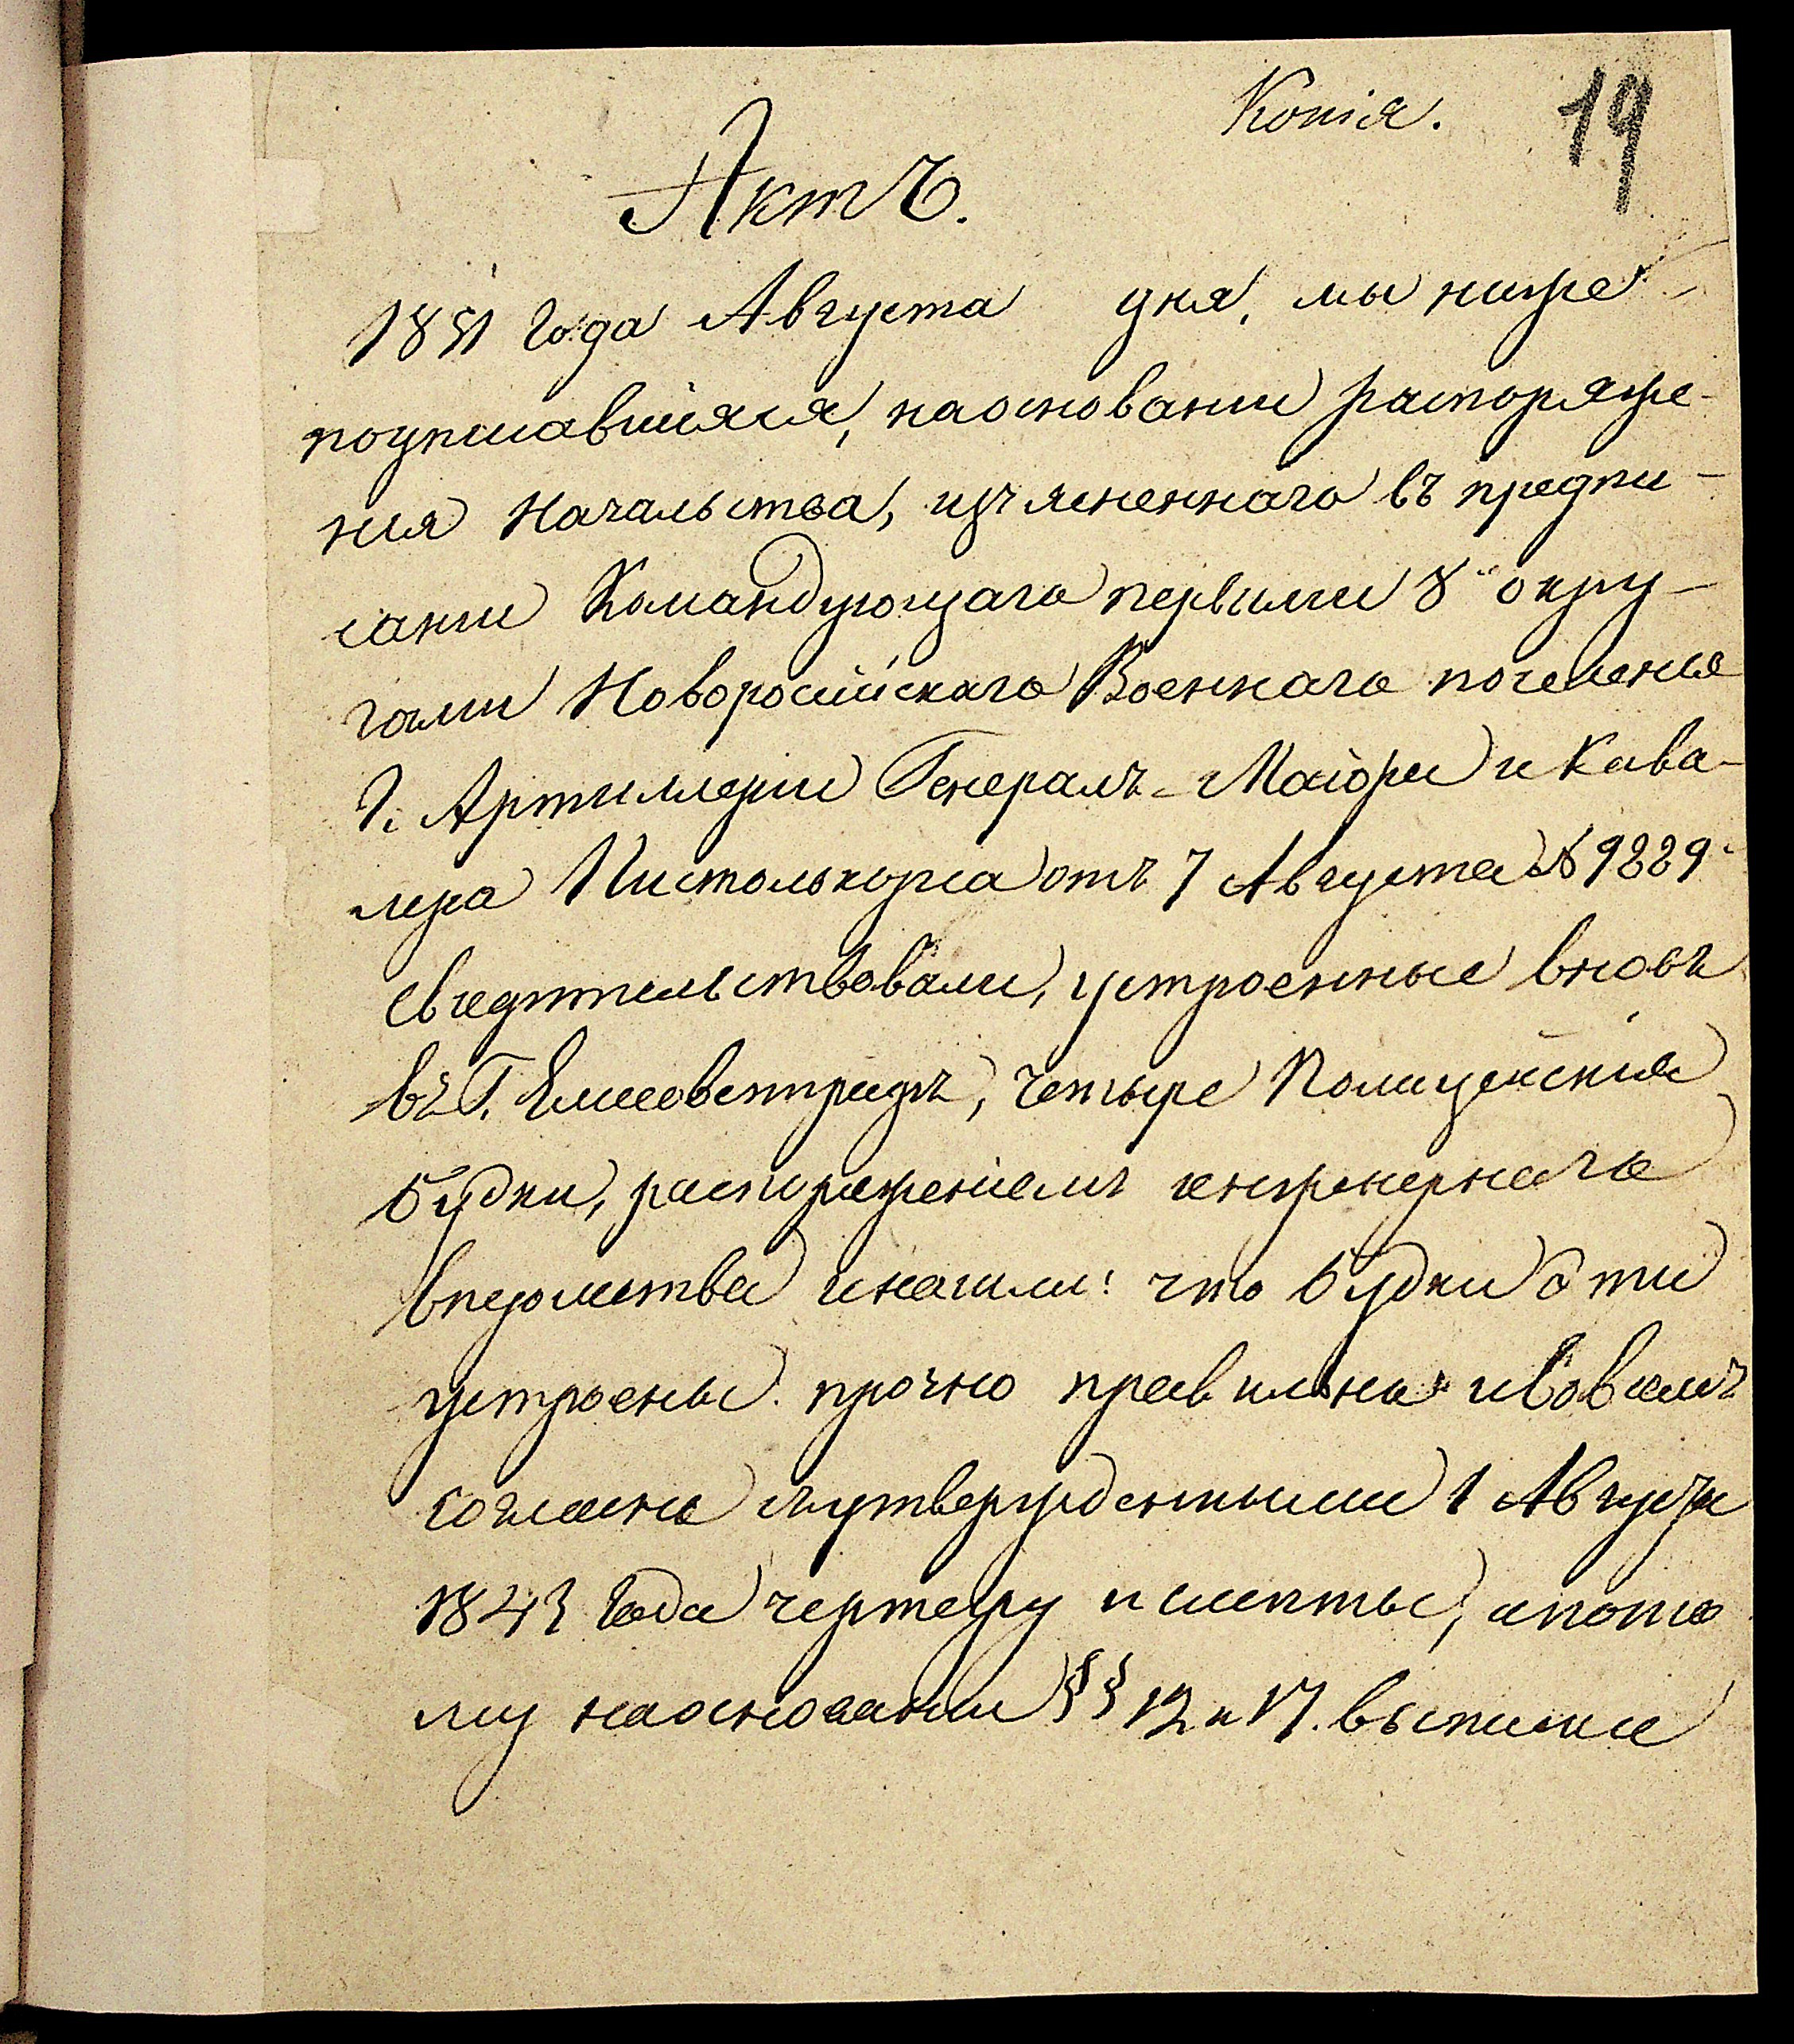 Копія.
19
Актъ.
1851 года Августа дня, мы ниже
подписавшіяся, наосновании распоряже-
ния Начальства, изъясненнаго въ предпи-
сании Командующаго первыми 8ю окру-
гами Новоросійскаго Военнаго поселения
Г. Артиллерии Генералъ-Маіора и Кава-
лера Пистолькорса отъ 7 Августа № 9889
сведетельствовали, устроенные вновь
въ Г. Елисоветградъ, четыре Полицейскія
будки, распоряженіемъ инженернаго
вѣдомства инашли: что будки эти
устроены прочно правильна и вовсемъ
согласны съутвержденными 1 Августа
1843 года чертежу и сметы, апото
му наосновании §§ 12 и 17. выписки